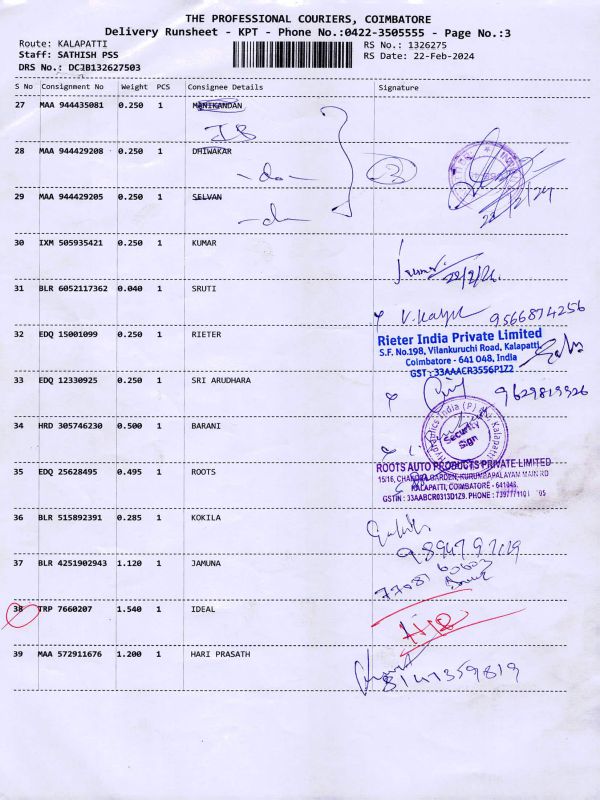 THE PROFESSIONAL COURIERS, COIMBATORE
Delivery Runsheet - KPT - Phone No.:0422-3505555 - Page No.:3
Route: KALAPATTI
RS No.: 1326275
Staff: SATHISH PSS
RS Date: 22-Feb-2024
DRS No.: DCJB132627503
S No Consignment No Weight PCS Consignee Details Signature
27 MAA 944435081 0.250 1 MANIKANDAN
28 MAA 944429208 0.250 1 DHIWAKAR
-do-
3
29 MAA 944429205 0.250 1 SELVAN
-do-
22/2/24
30 IXM 505935421 0.250 1 KUMAR
31 BLR 6052117362 0.040 1 SRUTI
9566874256
32 EDQ 15001099 0.250 1 RIETER
Rieter India Private Limited
S.F. No.198, Vilankuruchi Road, Kalapatti,
Coimbatore - 641 048, India
GST : 33AAACR3556P1Z2
33 EDQ 12330925 0.250 1 SRI ARUDHARA
34 HRD 305746230 0.500 1 BARANI
Security
Sign
35 EDQ 25628495 0.495 1 ROOTS
ROOTS AUTO PRODUCTS PRIVATE LIMITED
KALAPATTI, COIMBATORE - 641048.
GSTIN : 33AABCR0313D1Z9. PHONE :
36 BLR 515892391 0.285 1 KOKILA
37 BLR 4251902943 1.120 1 JAMUNA
38 TRP 7660207 1.540 1 IDEAL
39 MAA 572911676 1.200 1 HARI PRASATH
8147359819